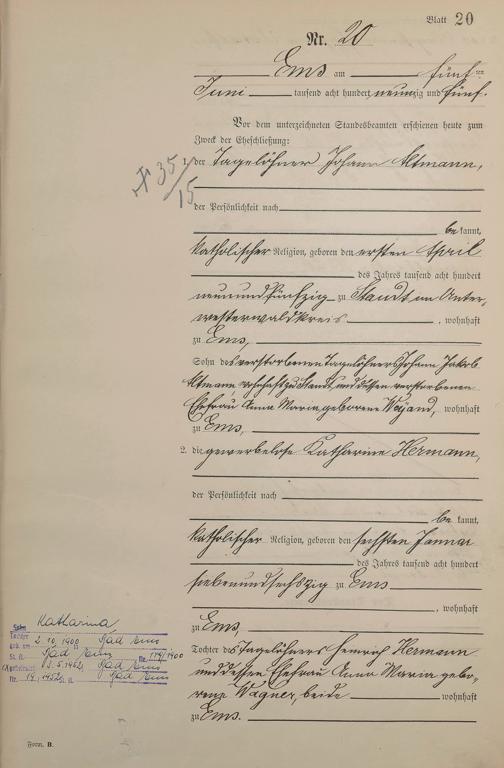 Blatt 20
Nr. 20
Ems am fünf ten
Juni tausend acht hundert neunzig und fünf.
Vor dem unterzeichneten Standesbeamten erschienen heute zum
Zweck der Eheschließung:
1. der Tagelöhner Johann Altmann,
+ 35/15
der Persönlichkeit nach
be kannt,
katholischer Religion, geboren den ersten April
des Jahres tausend acht hundert
neunundfünfzig zu Staudt im Unter,
westerwaldkreis, wohnhaft
zu Ems,
Sohn des verstorbenen Tagelöhners Johann Jakob
Altmann, zu Staudt, und dessen verstorbenen
Ehefrau Anna Maria geborene Weyand, wohnhaft
zu Ems,
2. die gewerbelose Katharine Hermann,
der Persönlichkeit nach
be kannt,
katholischer Religion, geboren den sechsten Januar
des Jahres tausend acht hundert
siebenundsechszig zu Ems
, wohnhaft
zu Ems,
Tochter des Tagelöhners Heinrich Hermann
und dessen Ehefrau Anna Maria gebo-
rene Wagner, beide wohnhaft
zu Ems.
Katharina
Tochter
geb. am 2.10.1900 in Bad Ems
St. A. Bad Ems Nr. 174/1900
3.5.1952 Bad Ems
Nr. 14/1952 St. A. Bad Ems
Form. B.